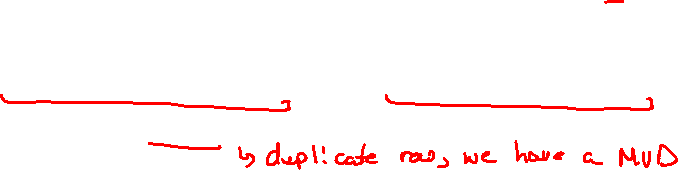 ↳ duplicate rows, we have a MVD